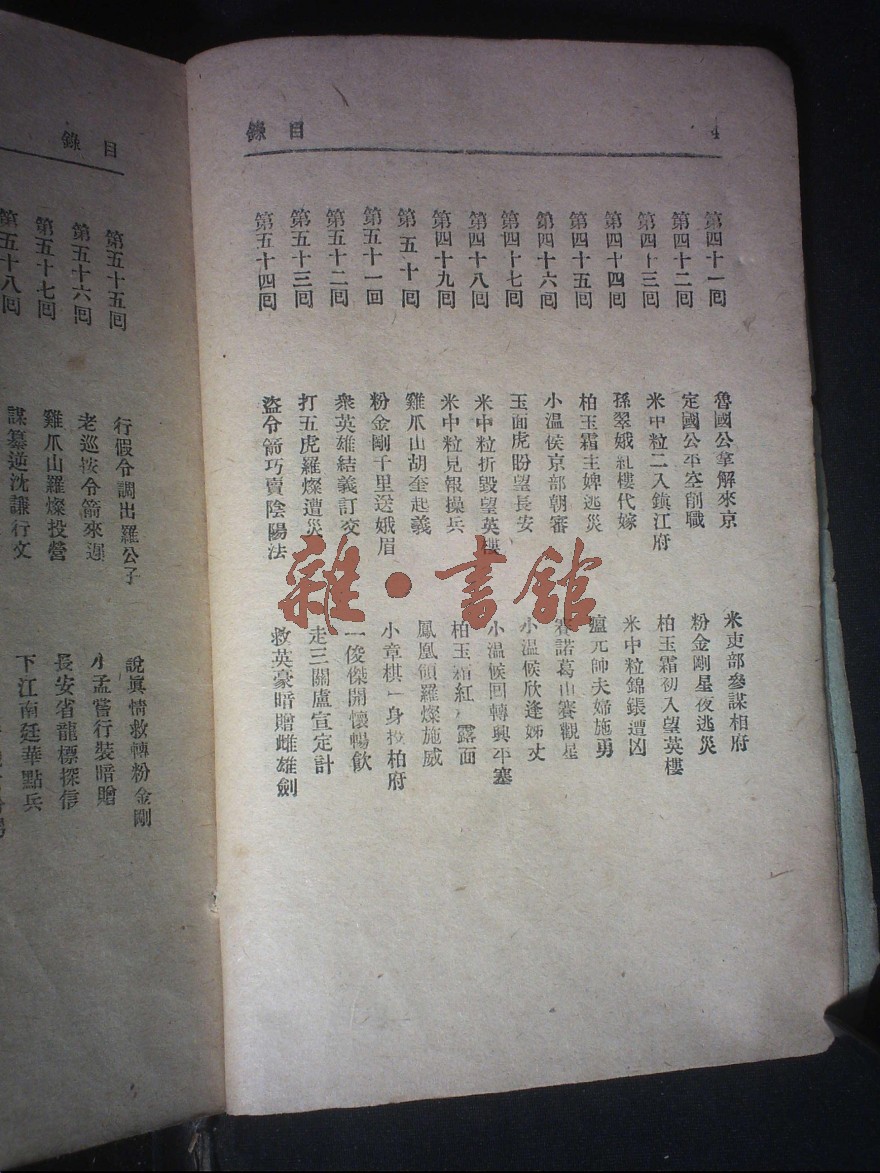 目錄
4
第四十一回 魯國公拿解來京 米吏部參謀相府
第四十二回 定國公平空削職 粉金剛星夜逃災
第四十三回 米中粒二入鎮江府 柏玉霜初入望英樓
第四十四回 孫翠娥紅樓代嫁 米中粒錦帳遭凶
第四十五回 柏玉霜主婢逃災 瘟元帥夫婦施勇
第四十六回 小溫侯京部朝審 賽諸葛山寨觀星
第四十七回 玉面虎盼望長安 小溫候欣逢姊丈
第四十八回 米中粒折毀望英樓 小溫候回轉興平寨
第四十九回 米中粒見報操兵 柏玉霜紅 露面
第五十回 雞爪山胡奎起義 鳳凰領羅燦施威
第五十一回 粉金剛千里送娥眉 小章棋一身投柏府
第五十二回 衆英雄結義訂交 一俊傑開懷暢飲
第五十三回 打五虎羅燦遭災 走三關盧宣定計
第五十四回 盜令箭巧賣陰陽法 救英豪暗贈雌雄劍
目錄
第五十五回 行假令調出羅公子 說眞情救轉粉金剛
第五十六回 老巡按令箭來遲 小孟嘗行裝暗贈
第五十七回 雞爪山羅燦投營 長安省龍標探信
第五十八回 謀篡逆沈謙行文 下江南廷華點兵
雜·書館